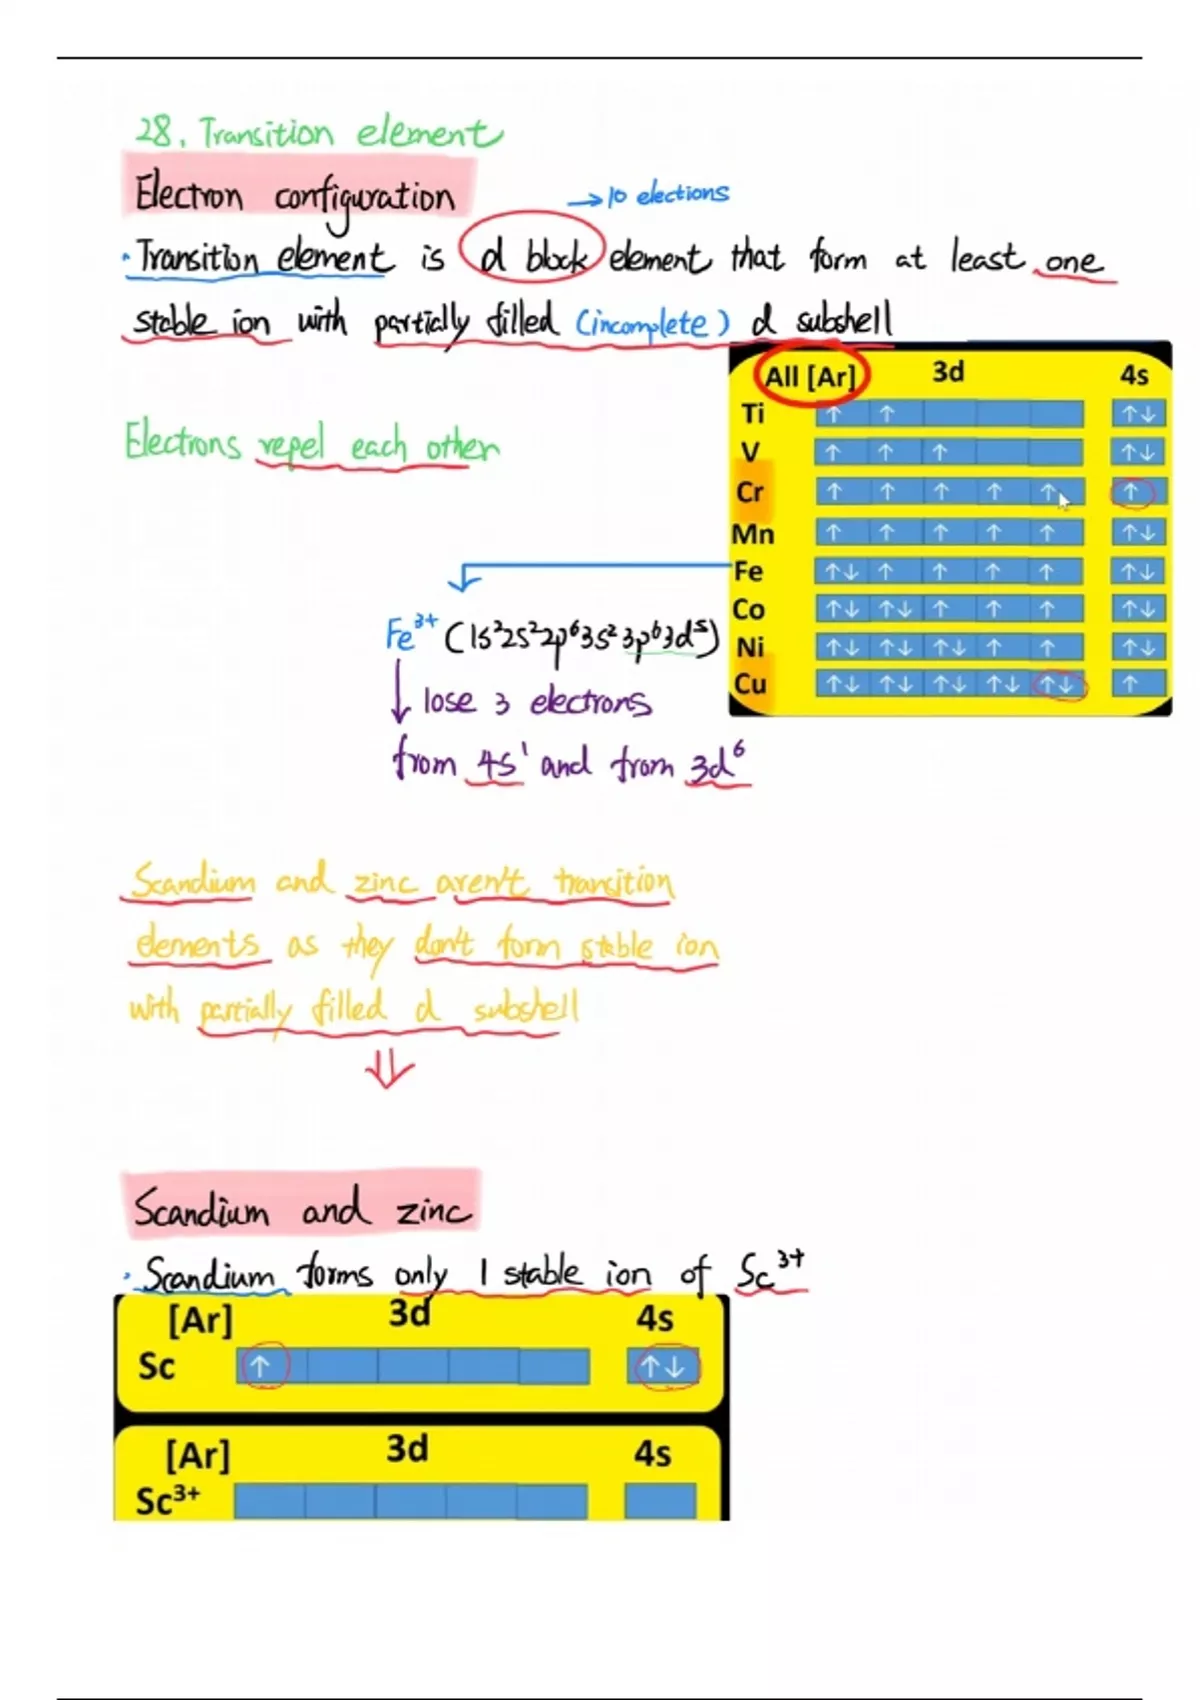 28. Transition element
Electron configuration
→10 elections
· Transition element is d block element that form at least one
stable ion with partially filled (incomplete) d subshell
All [Ar] 3d 4s
Ti ↑ ↑ ↑↓
Electrons repel each other
V ↑ ↑ ↑ ↑↓
Cr ↑ ↑ ↑ ↑ ↑ ↑
Mn ↑ ↑ ↑ ↑ ↑ ↑↓
Fe ↑↓ ↑ ↑ ↑ ↑ ↑↓
Co ↑↓ ↑↓ ↑ ↑ ↑ ↑↓
Ni ↑↓ ↑↓ ↑↓ ↑ ↑ ↑↓
Cu ↑↓ ↑↓ ↑↓ ↑↓ ↑↓ ↑
Fe³⁺ (1s²2s²2p⁶3s²3p⁶3d⁵)
↓ lose 3 electrons
from 4s¹ and from 3d⁶
Scandium and zinc aren't transition
elements as they don't form stable ion
with partially filled d subshell
⇓
Scandium and zinc
· Scandium forms only 1 stable ion of Sc³⁺
[Ar] 3d 4s
Sc ↑ ↑↓
[Ar] 3d 4s
Sc³⁺